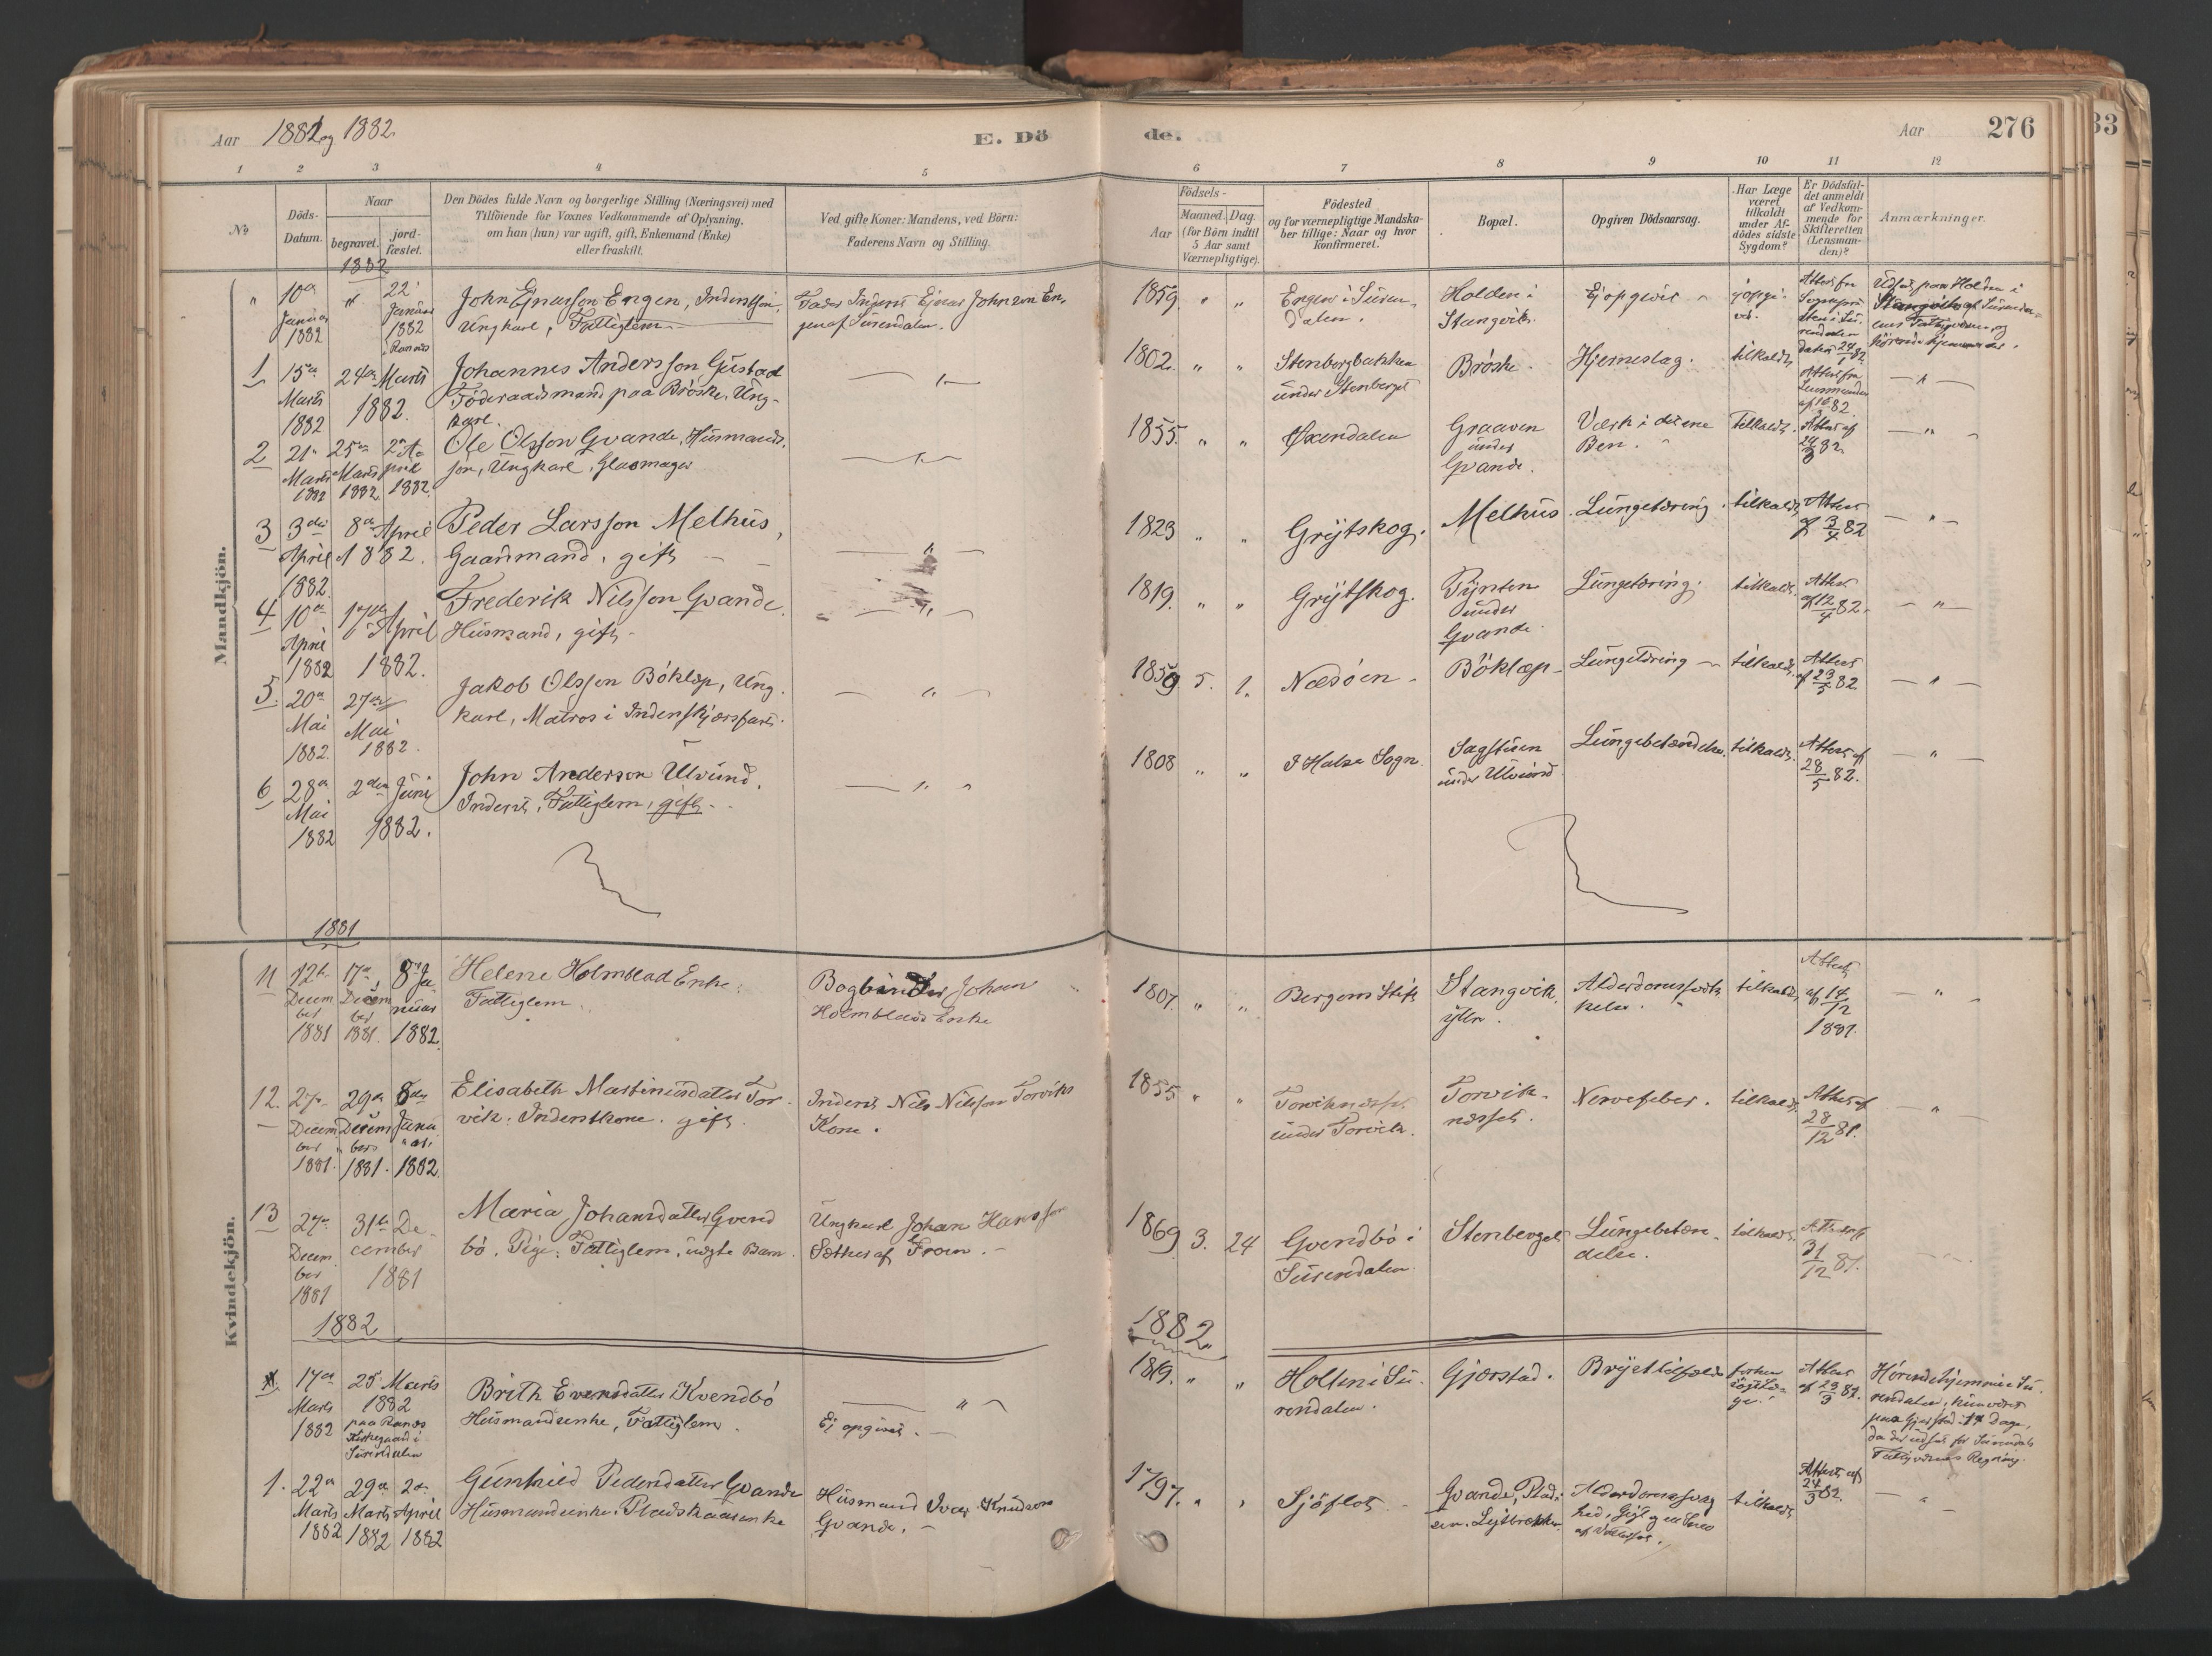 Aar 1881 og 1882.
E. Dö
de.
Aar
276
33
1 2 3 4 5 6 7 8 9 10 11 12
No
Döds-
Datum.
Naar
begravet.
jord-
fæstet.
Den Dödes fulde Navn og borgerlige Stilling (Næringsvei) med
Tilföiende for Voxnes Vedkommende af Oplysning,
om han (hun) var ugift, gift, Enkemand (Enke)
eller fraskilt.
Ved gifte Koner: Mandens, ved Börn:
Faderens Navn og Stilling.
Födsels-
Aar
Maaned.
Dag.
(for Börn indtil
5 Aar samt
Værnepligtige).
Födested
og for værnepligtige Mandska-
ber tillige: Naar og hvor
konfirmeret.
Bopæl.
Opgiven Dödsaarsag.
Har Læge
været
tilkaldt
under Af-
dödes sidste
Sygdom?
Er Dödsfal-
det anmeldt
af Vedkom-
mende for
Skifteretten
(Lensman-
den)?
Anmærkninger.
Mandkjön.
1882
" 10de
Januar
1882
"
22
Januar
1882
i Ranæs
John Ejnarson Engen, Inderstsøn,
Ungkarl, Fattiglem
Fader Inderst Ejnar Johnson En-
gen af Surendalen.
1859. " "
Engen i Suren-
dalen.
Holden i
Stangvik.
Ej opgivet
ej opgi-
vet.
Attest fra
Sognepræ-
sten i Su-
rendalen
dateret 24/1 82.
Udsat paa Holden i
Stangvik af Surenda-
lens Fattigvæsen og
hörende hjemme der.
1 15de
Marts
1882
24de Marts
1882.
Johannes Andersson Gustad
Föderaadsmand paa Bröske, Ung-
karl.
— " —
1802. " "
Stenbergbakken
under Stenberget
Bröske.
Hjerneslag.
tilkaldt.
Attest fra
Lensmanden
af 16/3 82.
— " —
2 21de
Marts
1882
25de
Marts
1882.
2den A-
pril
1882.
Ole Olsson Gvande, Husmands-
søn, Ungkarl, Glasmager
— " —
1855. " "
Öxendalen
Graaven
under
Gvande.
Værk i det ene
Ben.
Tilkaldt.
Attest af
24/3 82.
— " —
3 3die
April
1882.
8de April
1882.
Peder Larsson Melhus,
Gaardmand, gift
— " —
1829 " "
Grytskog.
Melhus.
Lungetæring.
tilkaldt.
Attest
af 3/4 82
— " —
4 10de
April
1882
17de
April
1882.
Frederik Nilsson Gvande.
Husmand, gift
— " —
1819. " "
Grytskog.
Pynten
under
Gvande.
Lungetæring.
tilkaldt.
Attest
af 12/4 82.
— " —
5. 20de
Mai
1882.
27de
Mai
1882.
Jakob Olsson Böklæp, Ung-
karl, Matros i Indenskjærsfart.
— " —
1859. 5. 1.
Næsöen
Böklæp
Lungetæring
tilkaldt.
Attest
af 23/5 82.
— " —
6 28de
Mai
1882
2den Juni
1882.
John Anderson Ulvund,
Inderst, Fattiglem, gift
— " —
1808 " "
I Halsa Sogn.
Sagstuen
under Ulvund
Lungebetændelse.
tilkaldt.
Attest af
28/5 82.
— " —
Kvindekjön.
1881
11 12te
Decem-
ber
1881
17de
Decem-
ber
1881.
8de Ja-
nuar
1882.
Helene Holmblad Enke.
Fattiglem.
Bogbinder Johan
Holmblads Enke
1807. " "
Bergens Stift
Stangvik
ytre.
tilkaldt,
Attest
af 14/12
1881.
— " —
12. 27de
Decem-
ber
1881.
29de
Decem-
ber
1881.
8de
Janu-
ar.
1882.
Elisabeth Martinusdatter Tor-
vik. Inderstkone. gift.
Inderst Nils Nilsson Torviks
Kone.
1855 " "
Torviknæsset
under Torvik.
Torvik-
næsset.
Nervefeber.
tilkaldt.
Attest af
28/12 81.
— " —
13 27de
Decem-
ber
1881
31te De-
cember
1881
Maria Johansdatter Gvend-
bö. Pige. Fattiglem, uægte Barn.
Ungkarl Johan Hansson
Sætter af Froen.
1869 3. 24
Gvendbö i
Surendalen.
Stenberget
Lungebetæn-
delse.
tilkaldt.
Attest af
31/12 81.
1882
1882
17de
Marts
1882
25 Marts
1882
paa Ranæs
Kirkegaard i
Surendalen
Brith Evensdatter Kvendbö
Husmandsenke, Fattiglem.
— " —
Ej opgivet.
1819. " "
Holten i Su-
rendalen.
Gjörstad.
Brysttilfælde
Attest
af 23/3 82.
Hörende hjemme i Su-
rendalen, hun været
paa Gjörstad i 14 Dage,
da der udsat for Surendals
Fattigvæsens Regning.
1. 22de
Marts
1882
29de
Marts
1882
2den
April
1882
Gunhild Pedersdatter Gvande
Husmandsenke. Pladskaarenke
Husmand Iver Knudson
Gvande.
1797. " "
Sjöflot
Gvande, Plad-
sen.
Alderdomssvag-
hed, Gigt
tilkaldt
Attest af
24/3 82.
— " —